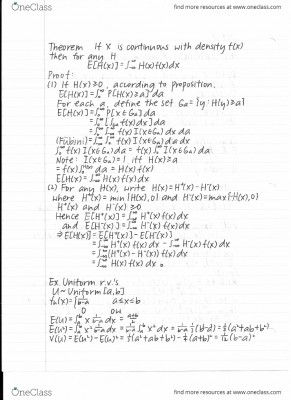 OneClass
find more resources at oneclass.com
Theorem If X is continuous with density f(x)
then for any H
E[H(X)] = ∫_{-∞}^{∞} H(x)f(x)dx
Proof:
(1) If H(x) ≥ 0, according to proposition,
E[H(X)] = ∫_0^∞ P[H(X) ≥ a] da
For each a, define the set Ga = {y: H(y) ≥ a}
E[H(X)] = ∫_0^∞ P[X ∈ Ga] da
= ∫_0^∞ [∫_{Ga} f(x) dx] da
= ∫_0^∞ ∫_{-∞}^{∞} f(x) I(x∈Ga) dx da
(Fubini) = ∫_{-∞}^{∞} ∫_0^∞ f(x) I(x∈Ga) da dx
∫_0^∞ f(x) I(x∈Ga) da = f(x) ∫_0^∞ I(x∈Ga) da
Note: I(x∈Ga) = 1 iff H(x) ≥ a
= f(x) ∫_0^{H(x)} da = H(x) f(x)
E[H(X)] = ∫_{-∞}^{∞} H(x) f(x) dx
(2) For any H(x), write H(x) = H⁺(x) - H⁻(x)
where H⁺(x) = min{H(x), 0} and H⁻(x) = max{-H(x), 0}
H⁺(x) and H⁻(x) ≥ 0
Hence E[H⁺(X)] = ∫_{-∞}^{∞} H⁺(x) f(x) dx
and E[H⁻(X)] = ∫_{-∞}^{∞} H⁻(x) f(x) dx
⇒ E[H(X)] = E[H⁺(X)] - E[H⁻(X)]
= ∫_{-∞}^{∞} H⁺(x) f(x) dx - ∫_{-∞}^{∞} H⁻(x) f(x) dx
= ∫_{-∞}^{∞} (H⁺(x) - H⁻(x)) f(x) dx
= ∫_{-∞}^{∞} H(x) f(x) dx
Ex. Uniform r.v.'s
U ~ Uniform [a,b]
fu(x) = { 1/(b-a) a ≤ x ≤ b
0 ow
E(U) = ∫_a^b x 1/(b-a) dx = (a+b)/2
E(U²) = ∫_a^b x² 1/(b-a) dx = 1/(b-a) ∫_a^b x² dx = 1/(b-a) 1/3 (b³-a³) = 1/3 (a²+ab+b²)
V(U) = E(U²) - E(U)² = 1/3 (a²+ab+b²) - 1/4 (a+b)² = 1/12 (b-a)²
find more resources at oneclass.com
OneClass